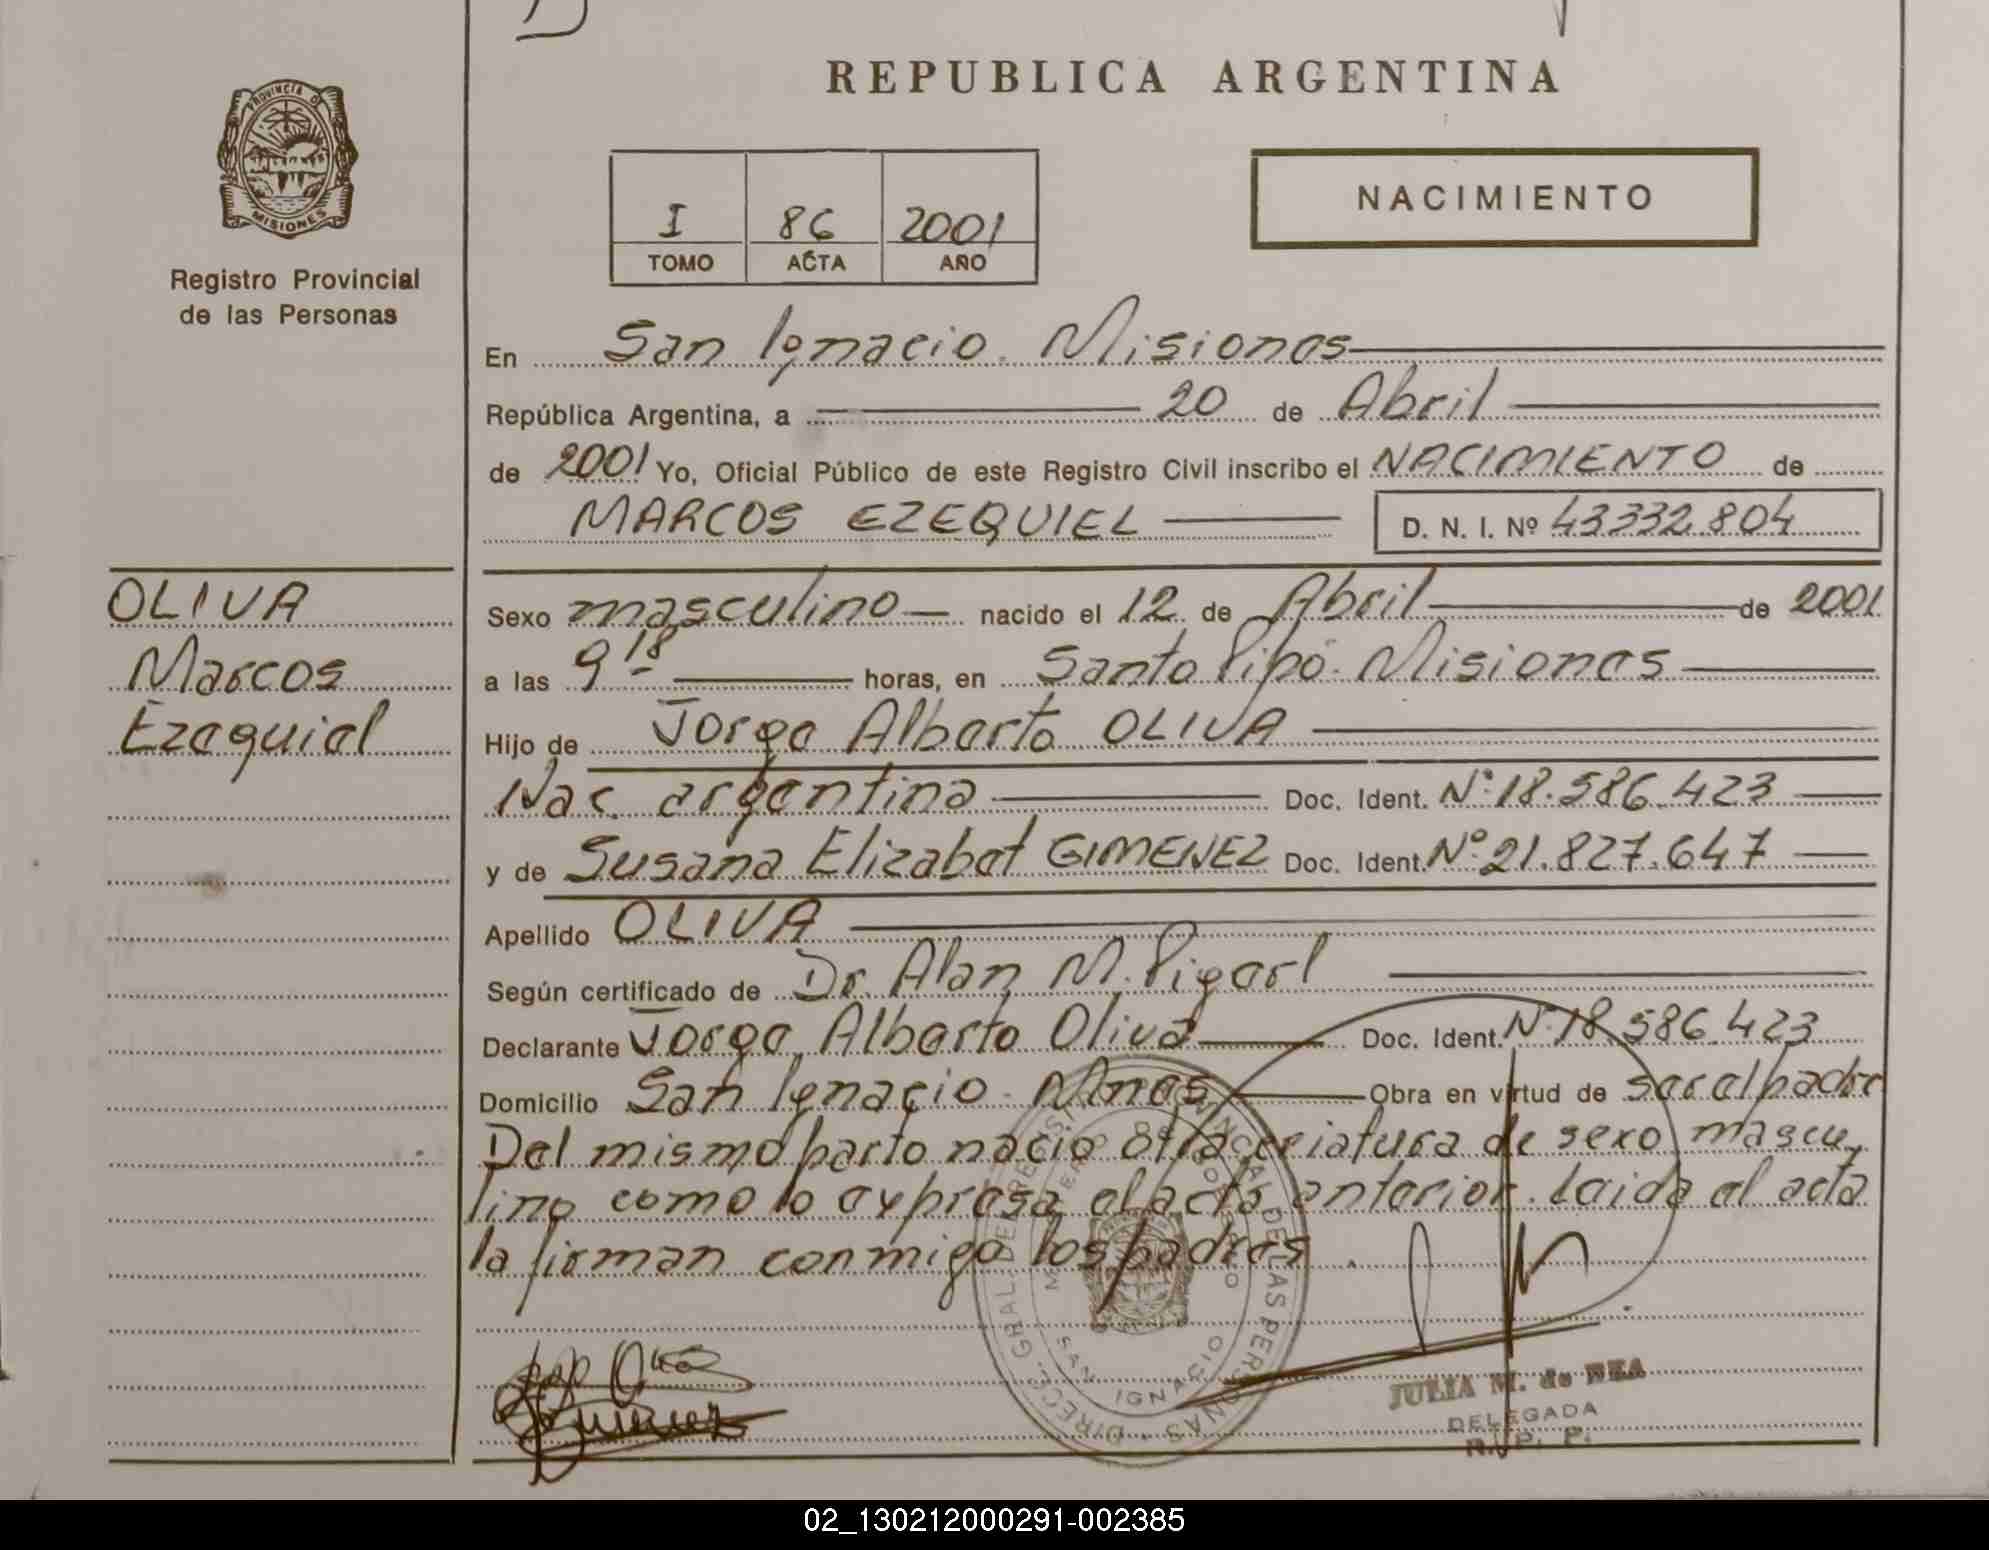 REPUBLICA ARGENTINA
PROVINCIA D
MISIONES
Registro Provincial
de las Personas
I 86 2001
TOMO ACTA AÑO
NACIMIENTO
En San Ignacio. Misiones
República Argentina, a 20 de Abril
de 2001 Yo, Oficial Público de este Registro Civil inscribo el NACIMIENTO de
MARCOS EZEQUIEL D. N. I. Nº 43332.804
OLIVA
Marcos
Ezequiel
Sexo masculino nacido el 12 de Abril de 2001
a las 9 18 horas, en Santo Pipó. Misiones
Hijo de Jorge Alberto OLIVA
Nac. argentina Doc. Ident. Nº 18.586.423
y de Susana Elizabet GIMENEZ Doc. Ident. Nº 21.827.647
Apellido OLIVA
Según certificado de Dr. Alan M.
Declarante Jorge Alberto Oliva Doc. Ident. Nº 18.586.423
Domicilio San Ignacio. Mnes Obra en virtud de ser el padre
Del mismo parto nació otra criatura de sexo mascu
lino como lo expresa el acta anterior. Leida el acta
la firman conmigo los padres.
DIRECC. GRAL. DE REGISTRO PROVINCIAL DE LAS PERSONAS
MINISTERIO DE GOBIERNO
SAN IGNACIO
JULIA M. de
DELEGADA
R. P. P.
02_130212000291-002385